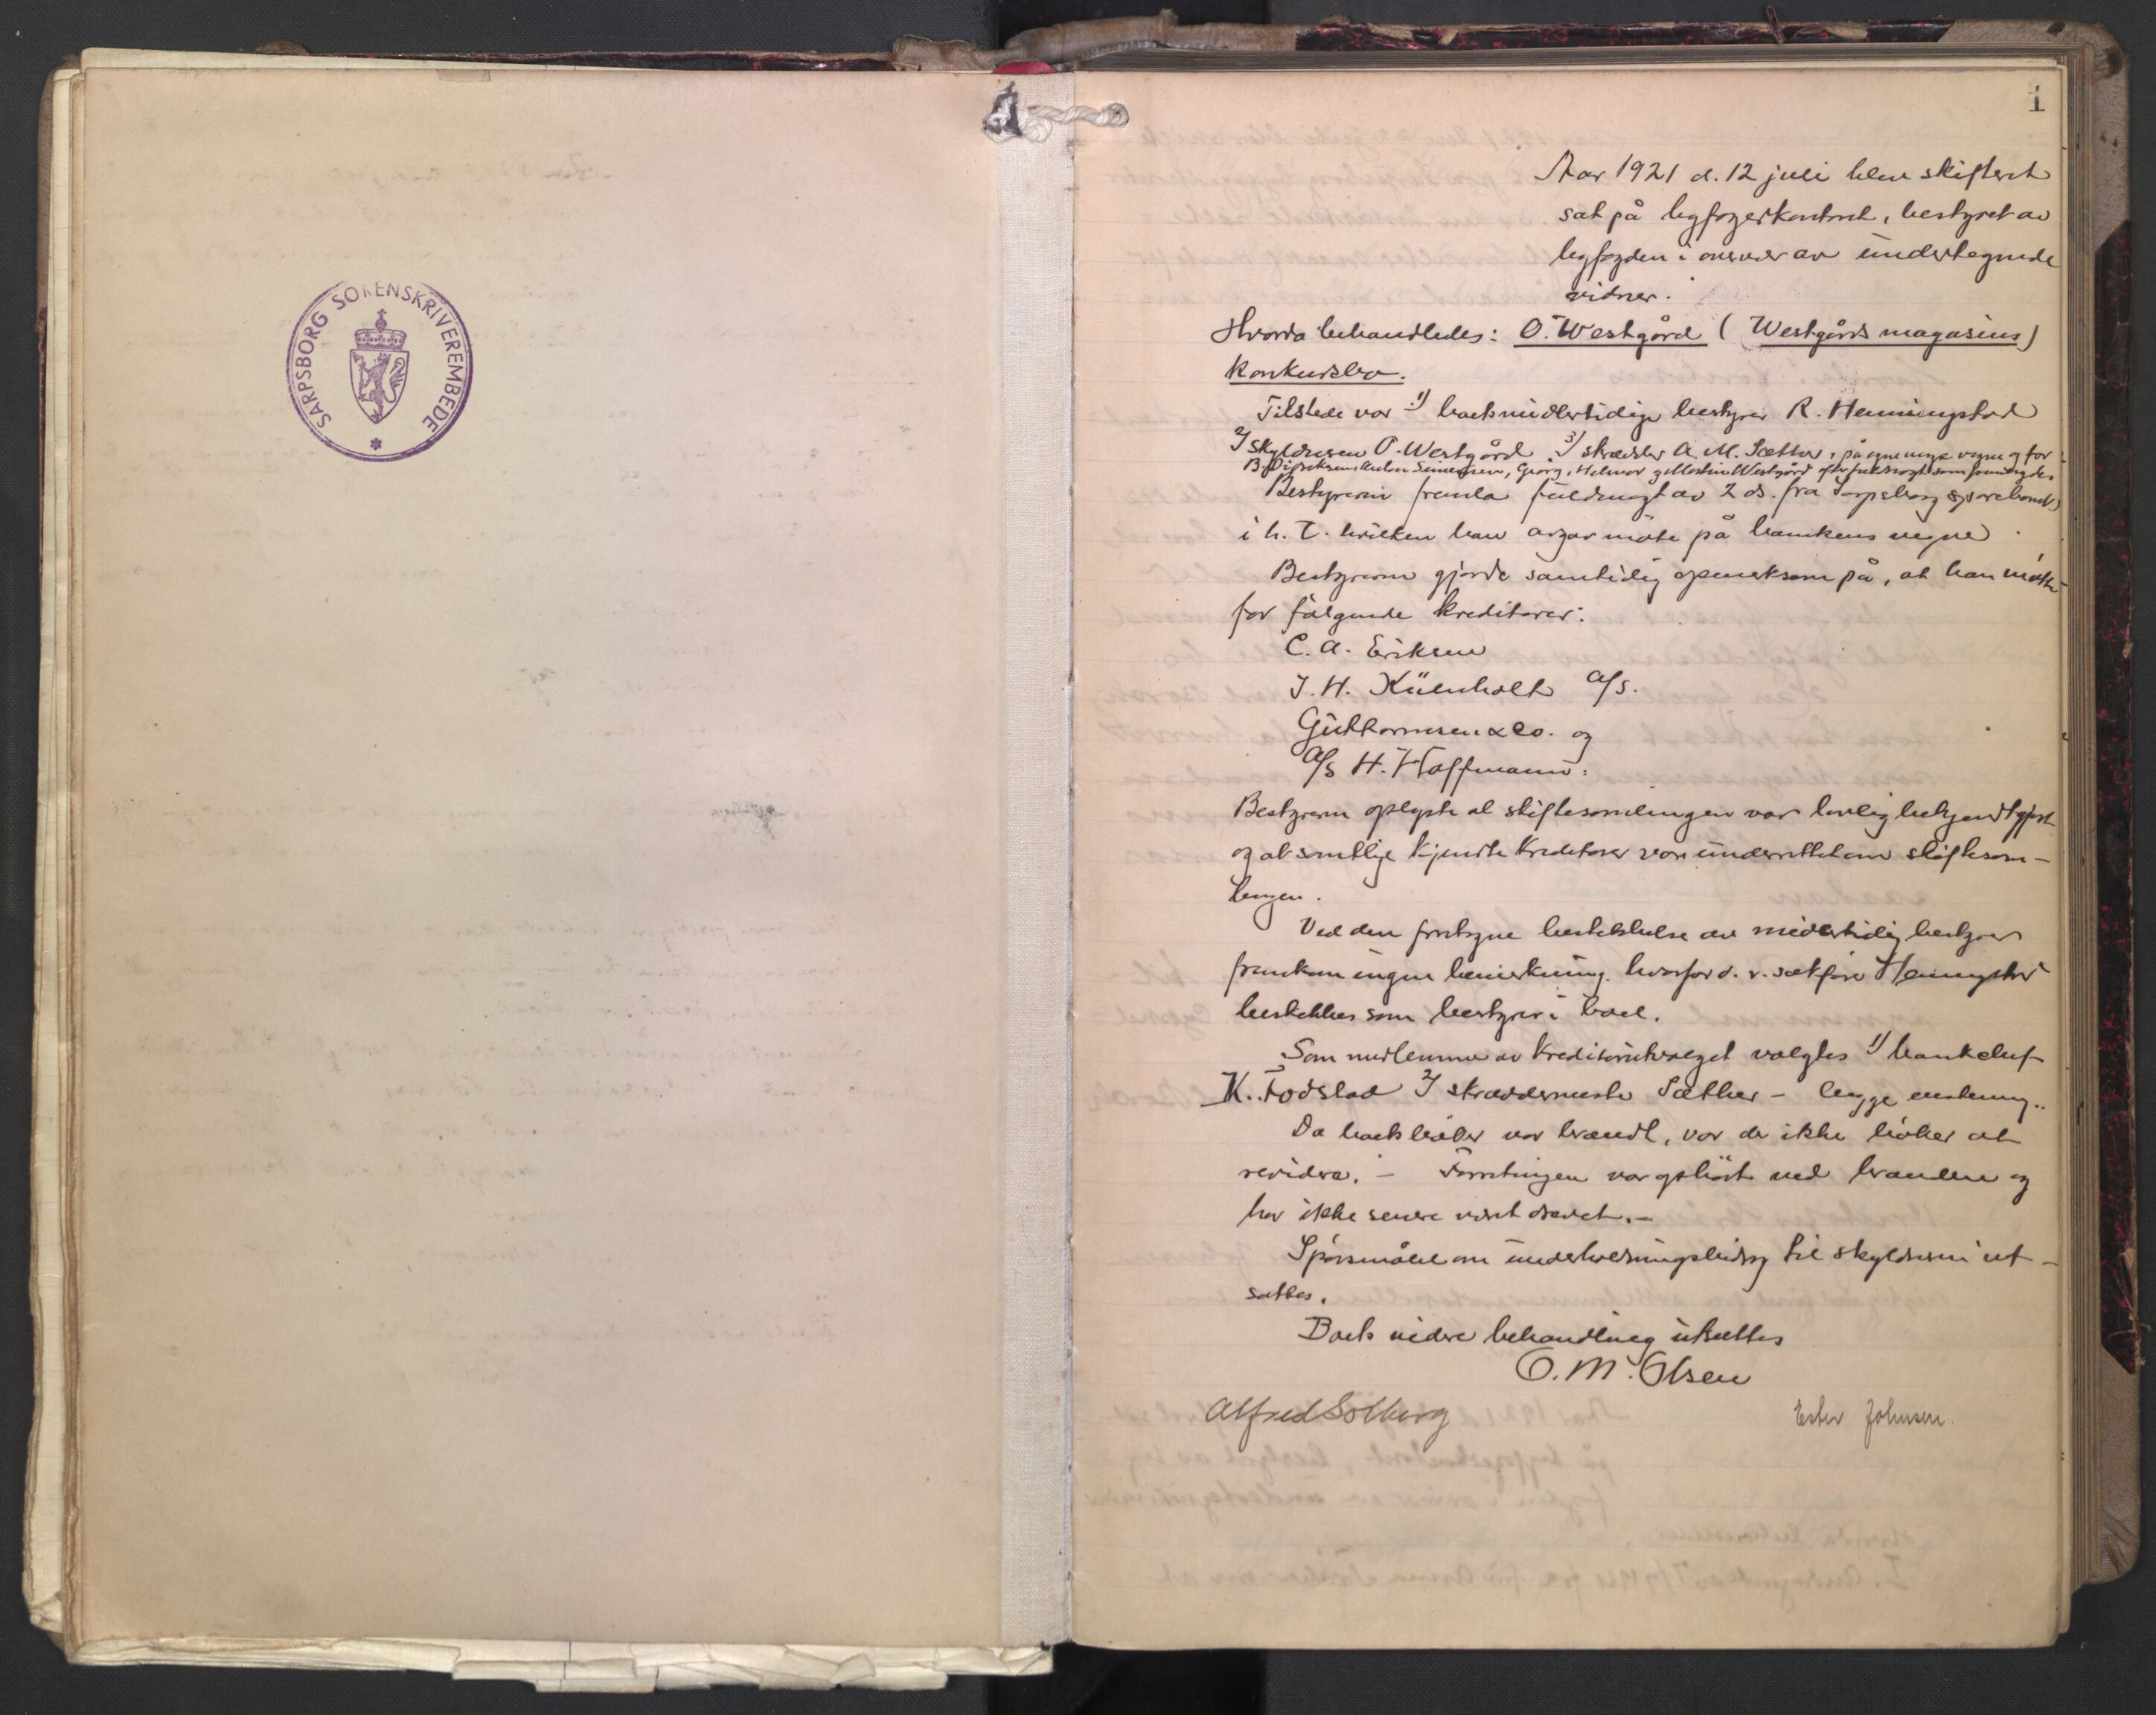 SARPSBORG SORENSKRIVEREMBEDE
1
Aar 1921 d. 12 juli blev skifteret
sat på byfogedkontoret, bestyret av
byfogden i overvær av undertegnede
vidner.
Hvorda behandledes: O. Westgård (Westgårds magasins)
konkursbo.
Tilstede var 1) boets midlertidige bestyrer R. Henningstad
2) skyldneren O. Westgård 3) skrædder A. M. Sæther, på egne vegne og for
B. Didriksen, Anton Simensen, Georg, Helmer og Martin Westgård efter fuldmagt som fremlagdes
Bestyreren fremla fuldmagt av 2 ds. fra Sarpsborg sparebank
i h. t. hvilken han avgav møte på bankens vegne
Bestyreren gjorde samtidig opmerksom på, at han møtte
for følgende kreditorer:
C. A. Eriksen
J. H. Küenholt A/S.
Guttormsen & Co. og
A/S H. Hoffmann.
Bestyreren oplyste at skiftesamlingen var lovlig bekjendtgjort
og at samtlige kjendte kreditorer var underrettet om skiftesam-
lingen.
Ved den foretagne beskikkelse av midlertidig bestyrer
fremkom ingen bemerkning. hvorfor o. r. sakfører Henningstad
beskikkes som bestyrer i boet.
Som medlemmer av kreditorutvalget valgtes 1) bankchef
K. Fodstad 2) skræddermester Sæther - begge enstemmig.
Da boets bøker var brændt, var der ikke bøker at
revidere. - Forretningen var ophørt ved branden og
har ikke senere været drevet. -
Spørsmålet om underholdningsbidrag til skyldneren ut-
sattes.
Boets videre behandling utsattes
O. M. Olsen
Alfred Solberg
Ester Johnsen.